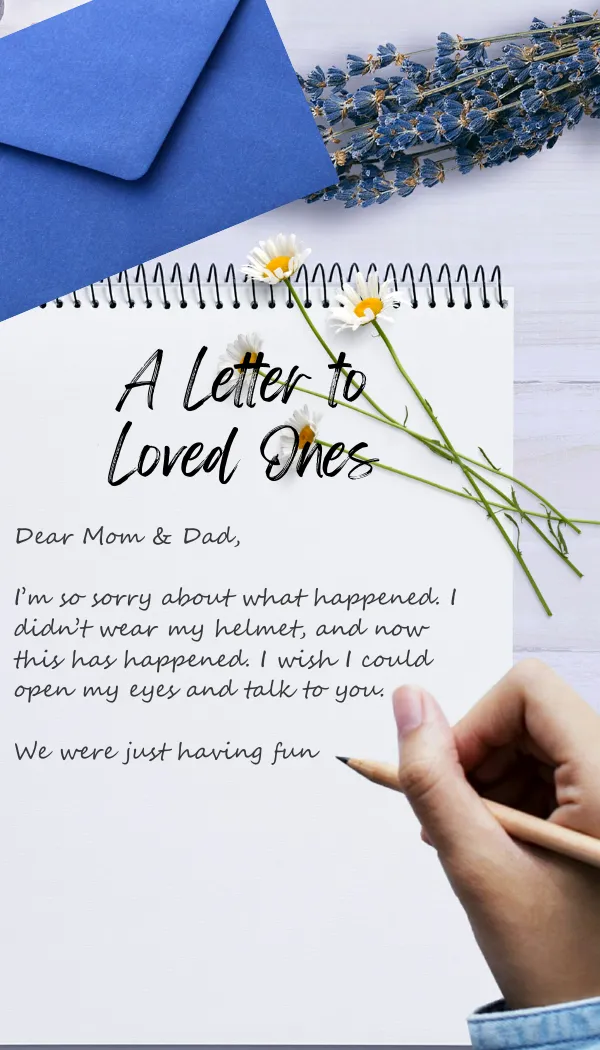 A Letter to
Loved Ones
Dear Mom & Dad,
I'm so sorry about what happened. I
didn't wear my helmet, and now
this has happened. I wish I could
open my eyes and talk to you.
We were just having fun